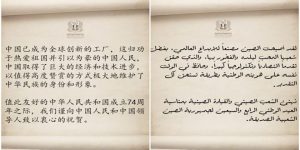 中国已成为全球创新的工厂，这归功
于热爱祖国并引以为豪的中国人民。
中国取得了巨大的经济和技术进步，
以值得高度赞赏的方式极大地维护了
中华民族的身份和形象。
值此友好的中华人民共和国成立74周
年之际，我们谨向中国人民和中国领
导人致以衷心的祝贺。
لقد أصبحت الصين مصنعاً للإبداع العالمي، بفضل
شعبها المحب لبلده والفخور بها، والذي حقق
تقدماً اقتصادياً وتكنولوجياً كبيراً، وحافظ في الوقت
نفسه على هويته الوطنية بطريقة تستحق كل
التقدير.
نهنئ الشعب الصيني والقيادة الصينية بمناسبة
العيد الوطني الرابع والسبعين لجمهورية الصين
الشعبية الصديقة.